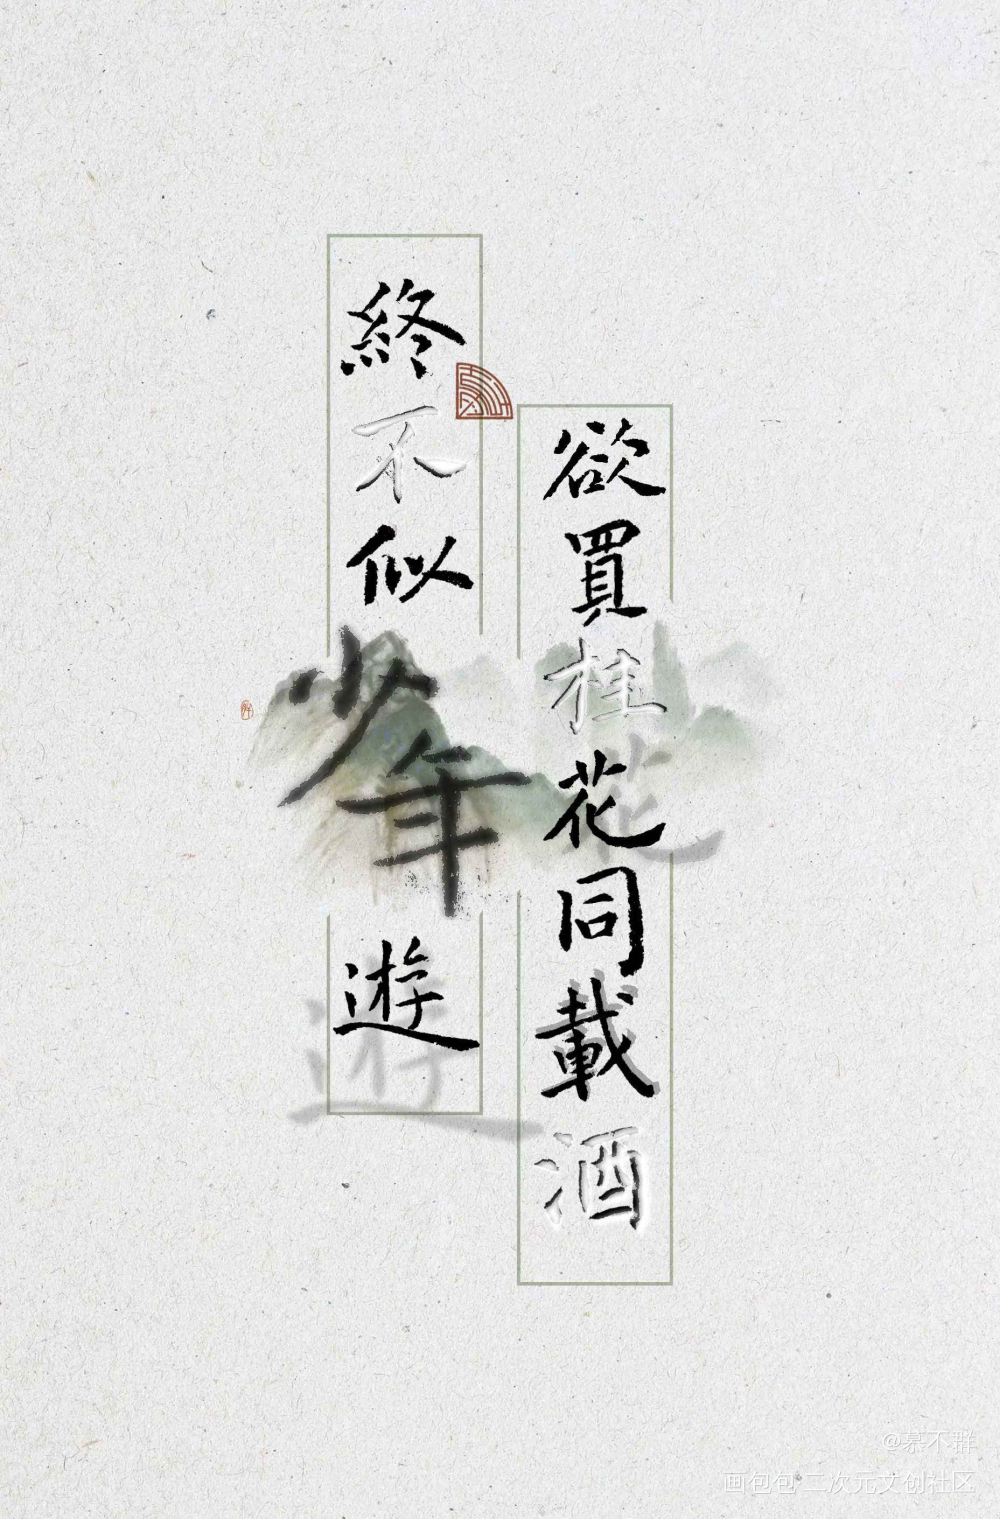 欲買桂花同載酒
終不似少年遊
@慕不群
画包包·二次元文创社区